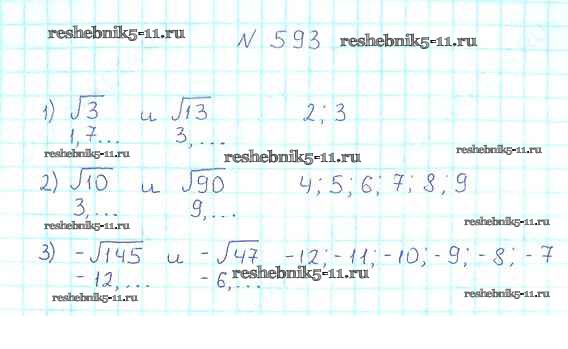 reshebnik5-11.ru
N 593 reshebnik5-11.ru
1) √3 и √13 2; 3
1,7... 3,...
reshebnik5-11.ru reshebnik5-11.ru reshebnik5-11.ru
2) √10 и √90 4; 5; 6; 7; 8; 9
3,... 9,...
reshebnik5-11.ru reshebnik5-11.ru
3) -√145 и -√47 -12; -11; -10; -9; -8; -7
-12,... -6,... reshebnik5-11.ru
reshebnik5-11.ru reshebnik5-11.ru